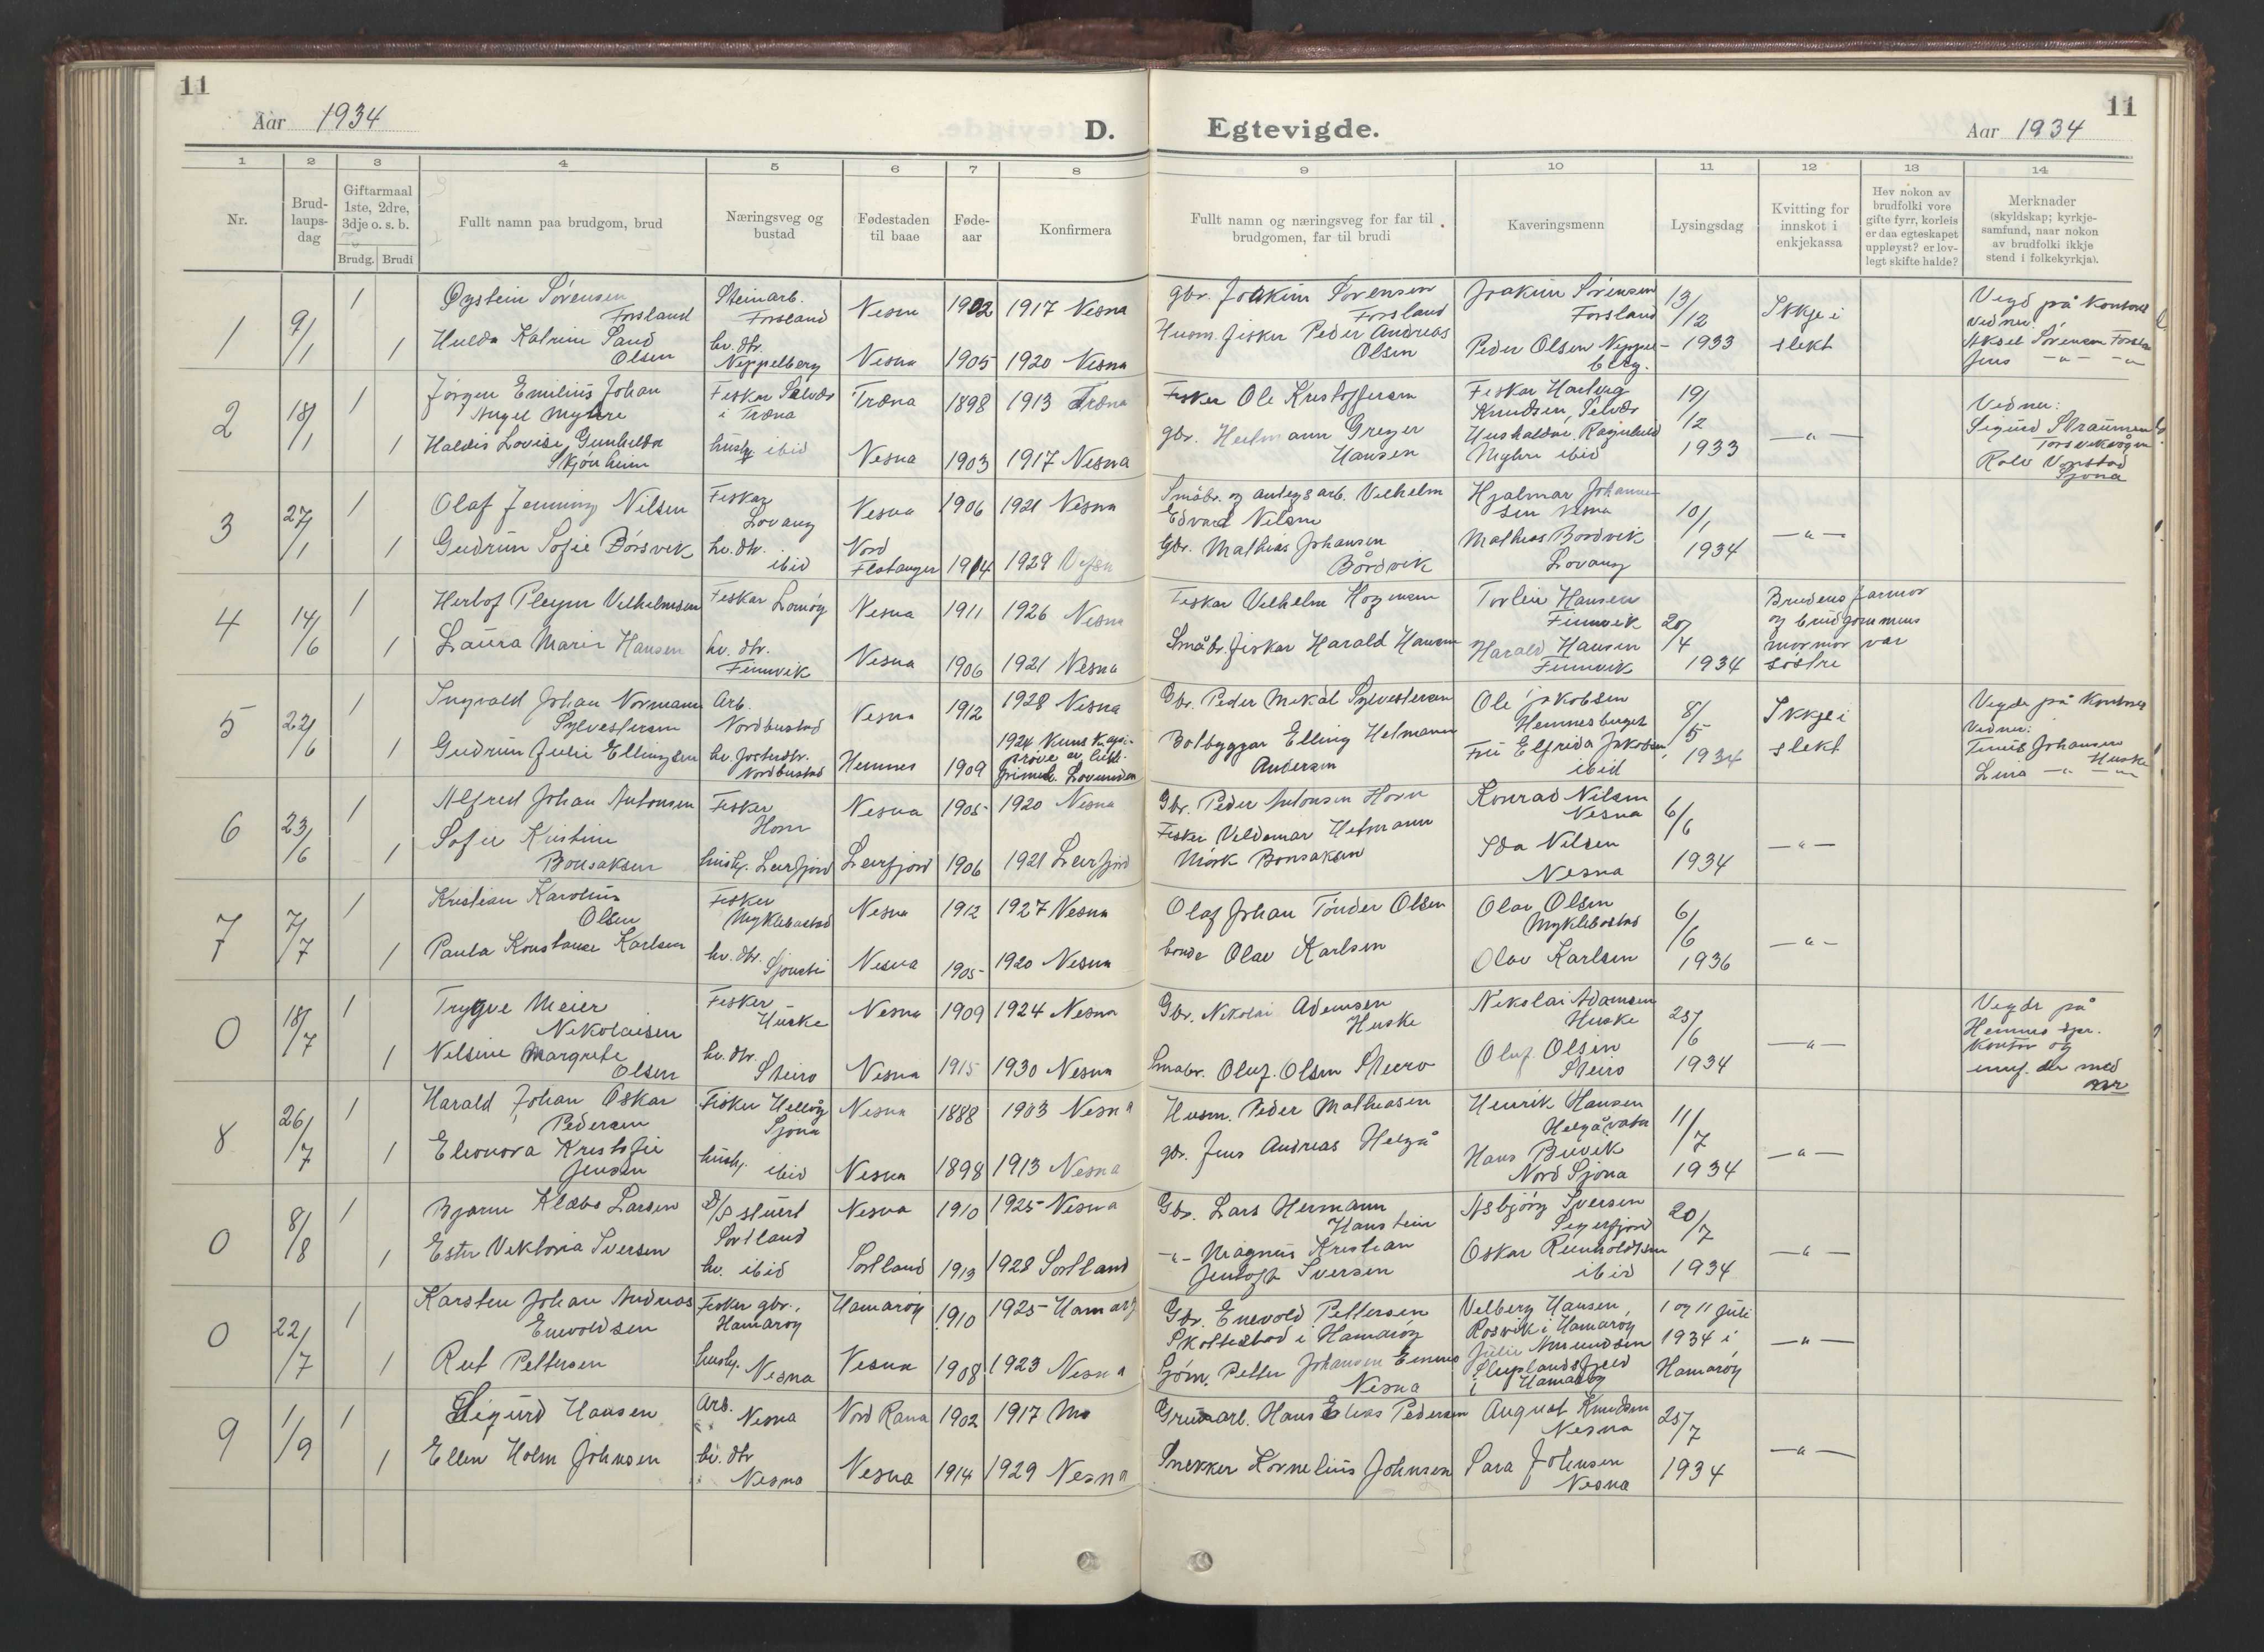 11
Aar 1934
D.
Egtevigde.
Aar 1934
11
1 2 3 4 5 6 7 8 9 10 11 12 13 14
Nr.
Brud-
laups-
dag
Giftarmaal
1ste, 2dre,
3dje o. s. b.
Brudg. Brudi
Fullt namn paa brudgom, brud
Næringsveg og
bustad
Fødestaden
til baae
Føde-
aar
Konfirmera
Fullt namn og næringsveg for far til
brudgomen, far til brudi
Kaveringsmenn
Lysingsdag
Kvitting for
innskot i
enkjekassa
Hev nokon av
brudfolki vore
gifte fyrr, korleis
er daa egteskapet
uppløyst? er lov-
legt skifte halde?
Merknader
(skyldskap; kyrkje-
samfund, naar nokon
av brudfolki ikkje
stend i folkekyrkja).
1
9/1
1
Øystein Sörensen
Forsland
Steinarb.
Forsland
Nesna
1902
1917 Nesna
gbr. Joakim Sörensen
Forsland
Joakim Sörensen
Forsland
13/12
1933
Ikkje i
slekt
Vigd på Kontoret
Vidner:
Aksel Sörensen
Jens -"- -"-
1
Hulda Katrine Sand
Olsen
hv. dtr.
Neppelberg
Nesna
1905
1920 Nesna
Husm. fisker Peder Andreas
Olsen
Peder Olsen Neppel-
berg.
2
18/1
1
Jörgen Emilius Johan
Angel Myhre
Fisker Selvær
i Træna
Træna
1898
1913 Træna
Fisker Ole Kristoffersen
Fisker Hartvig
Knudsen, Selvær
19/12
1933
-"-
Vidner:
Sigurd Straumen
Torsvikvågen
Rolv
Sjona
1
Haldis Lovise Gunhilda
Skjönheim
hush. ibid
Nesna
1903
1917 Nesna
gbr. Heelmann Greger
Hansen
Myhre ibid
3
27/1
1
Olaf Jenning Nilsen
Fisker
Lovang
Nesna
1906
1921 Nesna
Småbr. og anlegsarb. Vilhelm
Edvard Nilsen
Hjalmar Johanne-
sen Nesna
10/1
1934
-"-
1
Gudrun Sofie Börsvik
hv. dtr.
ibid
Nord
Flatanger
1914
1929
Gbr. Mathias Johansen
Bårdvik
Mathias Bordvik
Lovang
4
14/6
1
Herlof Pleym Vilhelmsen
Fisker
Nesna
1911
1926 Nesna
Fisker Vilhelm
Torlein Hansen
Finnvik
20/4
1934
Brudens farmor
og brudgommens
mormor var
söstre
1
Laura Marie Hansen
hv. dtr.
Finnvik
Nesna
1906
1921 Nesna
Småbr. fisker Harald Hansen
Harald Hansen
Finnvik
5
22/6
1
Ingvald Johan Normann
Sylvestersen
Arb.
Nordbustad
Nesna
1912
1928 Nesna
Gbr. Peder Mekal Sylvestersen
Ole Jakobsen
Hemnesberget
8/5
1934
Ikkje i
slekt
Vigde på Kontoret
Vidner:
Johansen
Huske
Lina -"- -"-
1
Gudrun Julie Ellingsen
hv. fosterdtr.
Nordbustad
Hemnes
1909
1924
Lovunden
Bolbyggar Elling Helmann
Andersen
Fru Elfrida Jakobsen
ibid
6
23/6
1
Alfred Johan Antonsen
Fisker
Horn
Nesna
1905
1920 Nesna
Gbr. Peder Antonsen Horn
Konrad Nilsen
Nesna
6/6
1934
-"-
1
Sofie Kristine
Bonsaksen
hush. Leirfjord
Leirfjord
1906
1921 Leirfjord
Fisker Valdemar Hetmann
Mörk Bonsaksen
Ida Nilsen
Nesna
7
7/7
1
Kristian Karolius
Olsen
Fisker
Myklebostad
Nesna
1912
1927 Nesna
Olaf Johan Tönder Olsen
Olav Olsen
Myklebostad
6/6
1936
-"-
1
Paula Konstanse Karlsen
hv. dtr.
Nesna
1905
1920 Nesna
bonde Olav Karlsen
Olav Karlsen
0
18/7
1
Trygve Meier
Nikolaisen
Fisker
Huske
Nesna
1909
1924 Nesna
Gbr. Nikolai Adamsen
Huske
Nikolai Adamsen
Huske
25/6
1934
-"-
Vigde på
Hemnes spr.
Kontor og
innf. der med
nr
1
Nelsine Margrete
Olsen
hv. dtr.
Steiro
Nesna
1915
1930 Nesna
Småbr. Oluf. Olsen Steiro
Oluf. Olsen
Steiro
8
26/7
1
Harald Johan Oskar
Pedersen
Fisker Helgå
Sjona
Nesna
1888
1903 Nesna
Husm. Peder Mathiasen
Henrik Hansen
Helgåvatn
11/7
1934
-"-
1
Eleonora Kristofie
Jensen
hush. ibid
Nesna
1898
1913 Nesna
gbr. Jens Andreas Helgå
Hans Buvik
Nord Sjona
0
8/8
1
Bjarne Klæbo Larsen
D/S stuert
Sortland
Nesna
1910
1925 Nesna
Gbr. Lars Hermann
Hanstein
Asbjörg Iversen
Sigerfjord
20/7
1934
-"-
1
Ester Viktoria Iversen
hv. ibid
Sortland
1913
1928 Sortland
-"- Magnus Kristian
Jentoft Iversen
Oskar Reinholdtsen
ibid
0
22/7
1
Karsten Johan Andreas
Enevoldsen
Fisker gbr.,
Hamaröy
Hamaröy
1910
1925 Hamaröy
Gbr. Enevold Pettersen
Skottestad i Hamaröy
Velberg Hansen,
Rosvik i Hamaröy
1 og 11 juli
1934 i
Hamaröy
-"-
1
Rut Pettersen
hush. Nesna
Nesna
1908
1923 Nesna
Sjöm. Petter Johansen
Nesna
Julie Amundsen
i Hamaröy
9
1/9
1
Sigurd Hansen
Arb.
Nesna
Nord Rana
1902
1917 Mo
Gruvearb. Hans Elias Pedersen
August Knudsen
Nesna
25/7
1934
-"-
1
Ellen Holm Johnsen
hv. dtr
Nesna
Nesna
1914
1929 Nesna
Snekker Kornelius Johnsen
Sara Johnsen
Nesna